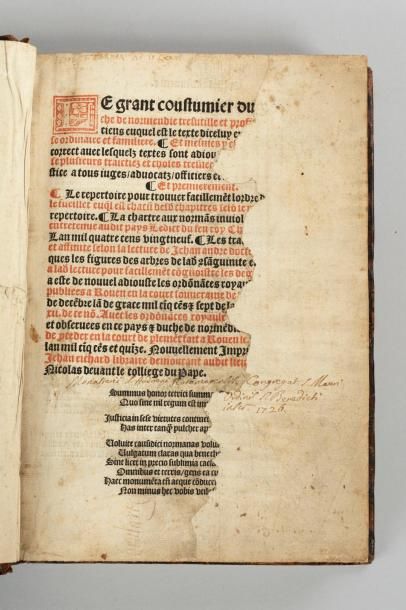 Le grant coustumier du
che de normendie tresutille et prof
ticiens euquel est le texte diceluy e
se ordinaire et familiere. Et mesmes y e
correct auec lesquelz textes sont adiou
se plusieurs traictiez et choses
stice a tous iuges/aduocatz/officiers et
¶ Et premierement.
¶ Le repertoire pour trouuer facillemēt lordre d
le fueillet euql est
repertoire. ¶ La chartre aux normās
entretenue audit pays Ledict du feu roy Ch
Lan mil quatre cens vingtneuf. ¶ Les tra
et affinite selon la lecture de Jehan andre
ques les figures des arbres de lad
a lad lecture pour facillemēt cōgnoistre les
a este de nouuel adiouste les ordōnāces royau
publiees a Rouen en la court souueraine de
de decēbre lā de grace mil cīq cēs et sept
Auec les ordōnāces royaulx
et obseruees en ce pays et duche de normēd
en la court de plement a Rouen le
lan mil cīq cēs et quīze. Nouuellement Impr
Jehan richard libraire demourant audit lieu
Nicolas deuant le colliege du Pape.
Monasterii S. Congregat. S. Mauri
Ordinis S. Benedicti
1726.
Summus honor tetrici summ
Quo sine mil regum est
Justicia in sese virtutes continet
Has inter tanq̄ pulcher ap
Voluite causidici normanas volu
Vulgatum claras qua
Sint licet in precio sublimia
Omnibus et terris/gens ea
Haec monumēta
Non minus hec vobis